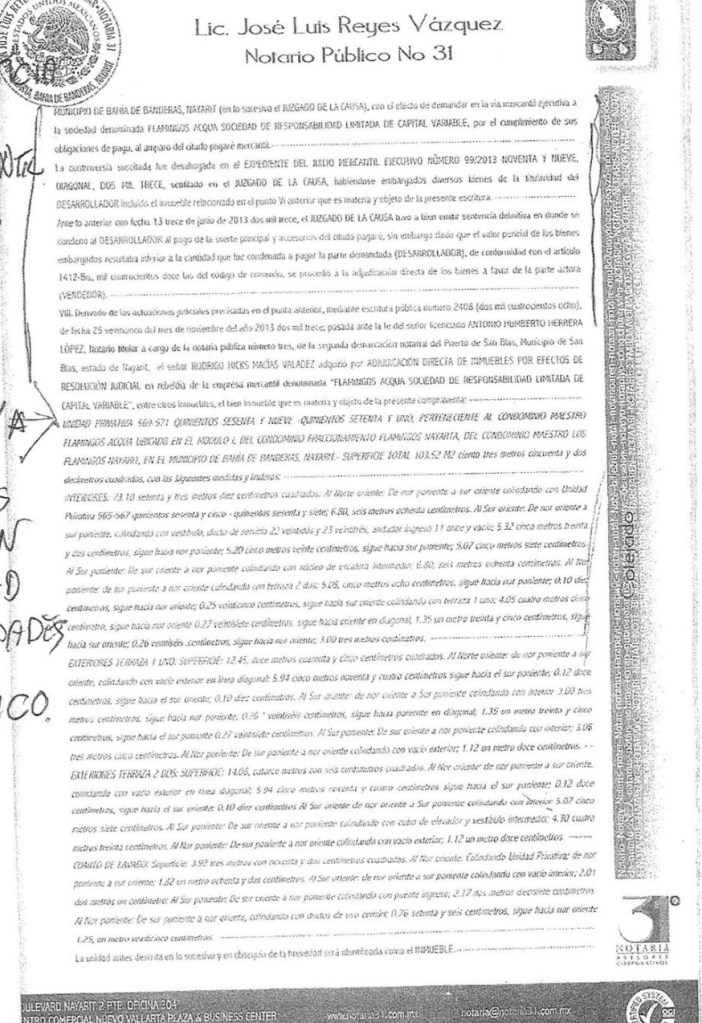 Lic. José Luis Reyes Vázquez
Notario Público No 31
MUNICIPIO DE BAHÍA DE BANDERAS, NAYARIT (en lo sucesivo el JUZGADO DE LA CAUSA), con el efecto de demandar en la vía mercantil ejecutiva a
la sociedad denominada FLAMINGOS ACQUA SOCIEDAD DE RESPONSABILIDAD LIMITADA DE CAPITAL VARIABLE, por el cumplimiento de sus
obligaciones de pago, al amparo del citado pagaré mercantil.
La controversia suscitada fue desahogada en el EXPEDIENTE DEL JUICIO MERCANTIL EJECUTIVO NÚMERO 99/2013 NOVENTA Y NUEVE,
DIAGONAL, DOS MIL TRECE, ventilado en el JUZGADO DE LA CAUSA, habiéndose embargados diversos bienes de la titularidad del
DESARROLLADOR incluido el inmueble relacionado en el punto VI anterior que es materia y objeto de la presente escritura.
Ante lo anterior con fecha 13 trece de junio de 2013 dos mil trece, el JUZGADO DE LA CAUSA tuvo a bien emitir sentencia definitiva en donde se
condeno al DESARROLLADOR al pago de la suerte principal y accesorios del citado pagaré, sin embargo dado que el valor pericial de los bienes
embargados resultaba inferior a la cantidad que fue condenada a pagar la parte demandada (DESARROLLADOR), de conformidad con el artículo
1412-Bis, mil cuatrocientos doce bis del código de comercio, se procedió a la adjudicación directa de los bienes a favor de la parte actora
(VENDEDOR).
VIII. Derivado de las actuaciones judiciales precisadas en el punto anterior, mediante escritura pública número 2408 (dos mil cuatrocientos ocho),
de fecha 25 veinticinco del mes de noviembre del año 2013 dos mil trece, pasada ante la fe del señor licenciado ANTONIO HUMBERTO HERRERA
LÓPEZ, Notario titular a cargo de la notaria pública número tres, de la segunda demarcación notarial del Puerto de San Blas, Municipio de San
Blas, estado de Nayarit, el señor RODRIGO HICKS MACÍAS VALADEZ adquirió por ADJUDICACIÓN DIRECTA DE INMUEBLES POR EFECTOS DE
RESOLUCIÓN JUDICIAL en rebeldía de la empresa mercantil denominada "FLAMINGOS ACQUA SOCIEDAD DE RESPONSABILIDAD LIMITADA DE
CAPITAL VARIABLE", entre otros inmuebles, el bien inmueble que es materia y objeto de la presente compraventa:
UNIDAD PRIVATIVA 569-571 QUINIENTOS SESENTA Y NUEVE -QUINIENTOS SETENTA Y UNO, PERTENECIENTE AL CONDOMINIO MAESTRO
FLAMINGOS ACQUA UBICADO EN EL MODULO I, DEL CONDOMINIO FRACCIONAMIENTO FLAMINGOS NAYARITA, DEL CONDOMINIO MAESTRO LOS
FLAMINGOS NAYARIT, EN EL MUNICIPIO DE BAHÍA DE BANDERAS, NAYARIT.- SUPERFICIE TOTAL 103.52 M2 ciento tres metros cincuenta y dos
decímetros cuadrados, con las siguientes medidas y linderos:
INTERIORES: 73.10 setenta y tres metros diez centímetros cuadrados: Al Norte oriente: De nor poniente a sur oriente colindando con Unidad
Privativa 565-567 quinientos sesenta y cinco - quinientos sesenta y siete; 6.80, seis metros ochenta centímetros. Al Sur oriente: De nor oriente a
sur poniente, colindando con vestíbulo, ducto de servicio 22 veintidós y 23 veintitrés, andador ingreso 11 once y vacío; 5.32 cinco metros treinta
y dos centímetros, sigue hacia nor poniente; 5.20 cinco metros veinte centímetros, sigue hacia sur poniente; 5.07 cinco metros siete centímetros.
Al Sur poniente: De sur oriente a nor poniente colindando con núcleo de escalera intermedio; 6.80, seis metros ochenta centímetros. Al Nor
poniente: de sur poniente a nor oriente colindando con terraza 2 dos; 5.08, cinco metros ocho centímetros, sigue hacia nor poniente; 0.10 diez
centímetros, sigue hacia nor oriente; 0.25 veinticinco centímetros, sigue hacia sur oriente colindando con terraza 1 uno; 4.05 cuatro metros cinco
centímetro, sigue hacia nor oriente 0.27 veintisiete centímetros, sigue hacia oriente en diagonal, 1.35 un metro treinta y cinco centímetros, sigue
hacia sur oriente; 0.26 veintiséis centímetros, sigue hacia nor oriente; 3.00 tres metros centímetros.
EXTERIORES TERRAZA 1 UNO: SUPERFICIE: 12.45, doce metros cuarenta y cinco centímetros cuadrados. Al Norte oriente: de nor poniente a sur
oriente, colindando con vacío exterior en línea diagonal; 5.94 cinco metros noventa y cuatro centímetros sigue hacia el sur poniente; 0.12 doce
centímetros, sigue hacia el sur oriente; 0.10 diez centímetros. Al Sur oriente: de nor oriente a Sur poniente colindando con interior 3.00 tres
metros centímetros, sigue hacia nor poniente; 0.26 veintiséis centímetros, sigue hacia poniente en diagonal; 1.35 un metro treinta y cinco
centímetros, sigue hacia el sur poniente 0.27 veintisiete centímetros. Al Sur poniente: De sur oriente a nor poniente colindando con interior; 3.05
tres metros cinco centímetros. Al Nor poniente: De sur poniente a nor oriente colindando con vacío exterior; 1.12 un metro doce centímetros.
EXTERIORES TERRAZA 2 DOS: SUPERFICIE: 14.06, catorce metros con seis centímetros cuadrados. Al Nor oriente: de nor poniente a sur oriente,
colindando con vacío exterior en línea diagonal; 5.94 cinco metros noventa y cuatro centímetros sigue hacia el sur poniente; 0.12 doce
centímetros, sigue hacia el sur oriente; 0.10 diez centímetros Al Sur oriente: de nor oriente a Sur poniente colindando con interior 5.07 cinco
metros siete centímetros. Al Sur poniente: De sur oriente a nor poniente colindando con cubo de elevador y vestíbulo intermedio; 4.30 cuatro
metros treinta centímetros. Al Nor poniente: De sur poniente a nor oriente colindando con vacío exterior; 1.12 un metro doce centímetros.
CUARTO DE LAVADO: Superficie: 3.92 tres metros con noventa y dos centímetros cuadrados. Al Nor oriente: Colindando Unidad Privativa; de nor
poniente a sur oriente; 1.82 un metro ochenta y dos centímetros. Al Sur oriente: de nor oriente a sur poniente colindando con vacío interior; 2.01
dos metros un centímetro; Al Sur poniente: De sur oriente a nor poniente colindando con puente ingreso; 2.17 dos metros diecisiete centímetros.
Al Nor poniente: De sur poniente a nor oriente, colindando con ductos de uso común; 0.76 setenta y seis centímetros, sigue hacia nor oriente
1.25, un metro veinticinco centímetros.
La unidad antes descrita en lo sucesivo y en obsequio de la brevedad será identificada como el INMUEBLE.
Cotejado
31
NOTARIA
ASESORES
CORPORATIVOS
BOULEVARD NAYARIT 2 PTE. OFICINA 204
CENTRO COMERCIAL NUEVO VALLARTA PLAZA & BUSINESS CENTER
www.notaria31.com.mx
notaria@notaria31.com.mx